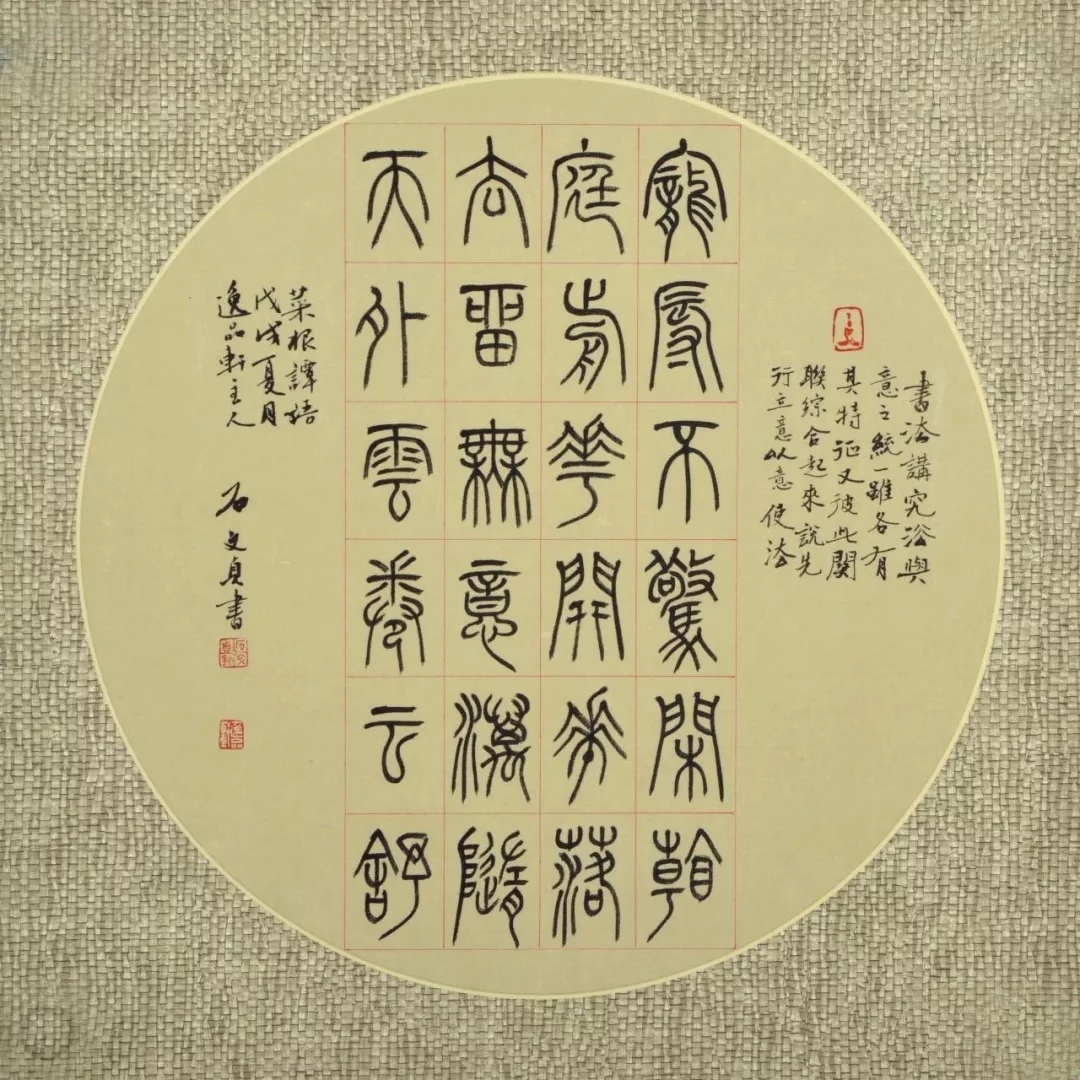 書法講究法與
意之統一雖各有
其特征又彼此關
聯綜合起來說先
行立意以意使法
寵辱不驚閑看
庭前花開花落
去留無意漫隨
天外雲卷云舒
菜根譚語
戊戌夏月
逸品軒主人 石文貞書